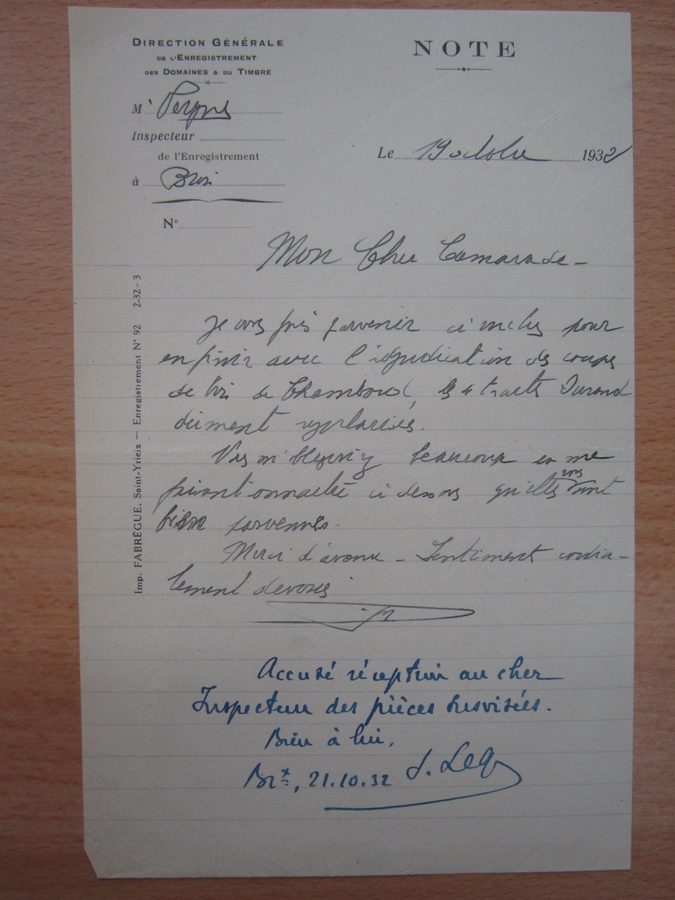 DIRECTION GÉNÉRALE
DE L'ENREGISTREMENT
DES DOMAINES & DU TIMBRE
NOTE
Mr
Inspecteur
de l'Enregistrement
à
Le 19 octobre 1932
N°
Mon Cher Camarade -
Je vous fais parvenir ci inclus pour
en finir avec l'adjudication des coupes
de bois de Chamboud, les 4 traites Durand
dûment
Vous m'obligeriez beaucoup en me
ci dessous qu'elles vous sont
bien parvenues.
Merci d'avance - Sentiment cordia-
lement dévoués
Accusé réception au cher
Inspecteur des pièces susvisées.
Bien à lui,
Brx, 21.10.32
Imp. FABRÈGUE, Saint-Yrieix — Enregistrement N° 92 2-32-3